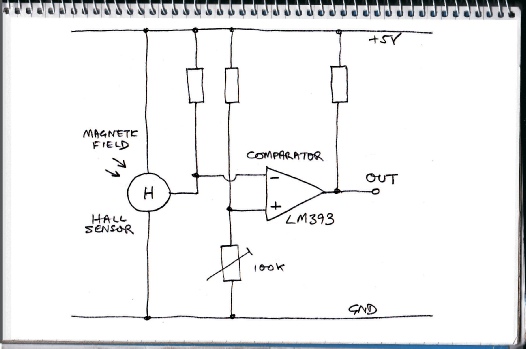 +5V
MAGNETIC
FIELD
COMPARATOR
H
-
OUT
+
LM393
HALL
SENSOR
100K
GND